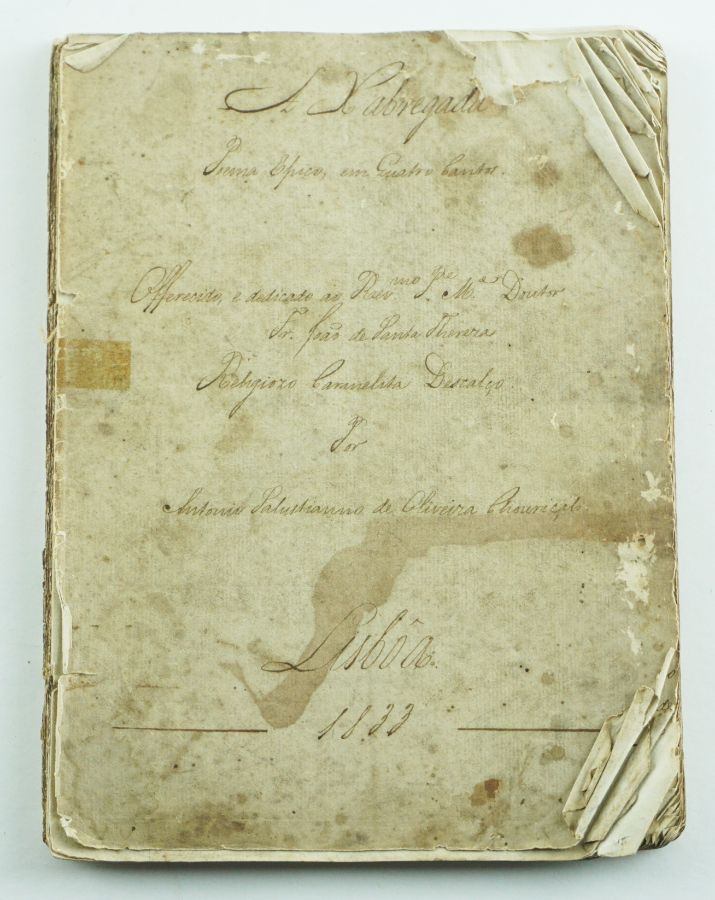 A Xabregada
Poema Epico, em Quatro Cantos.
Offerecido, e dedicado ao Rev.mo P.e M.e Doutor
Fr. João de Santa Thereza
Religiozo Carmelita Descalço.
Por
Antonio Salustianno de Oliveira
Lisbôa.
1833